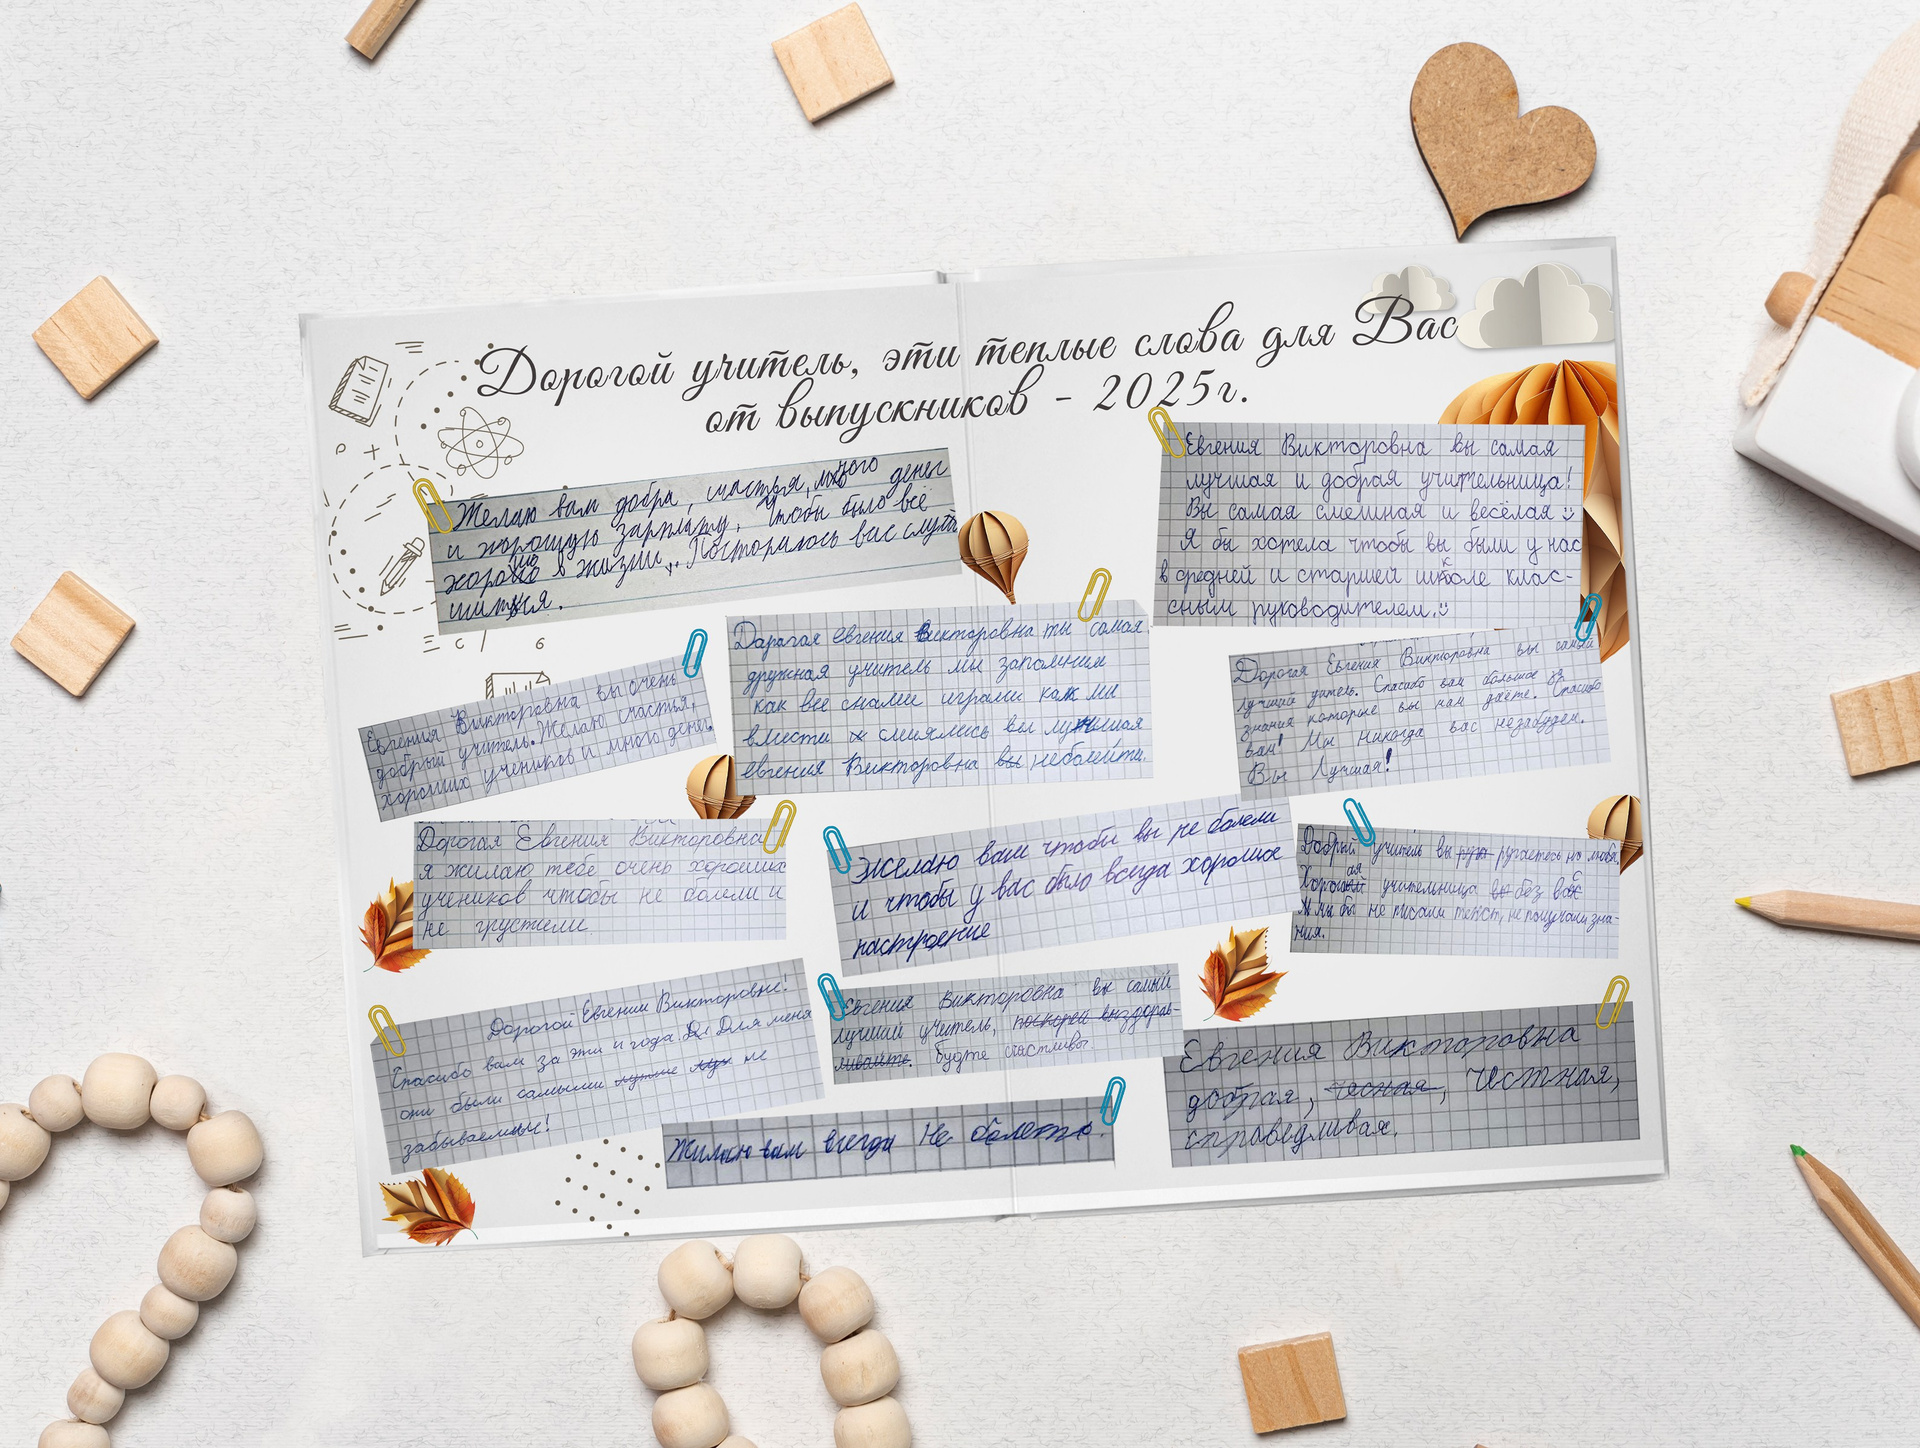 Дорогой учитель, эти теплые слова для Вас
от выпускников - 2025г.
Желаю вам добра, счастья, много денег
и хорошую зарплату, чтобы было всё
хорошо в жизни. Посторалось вас слуша
шиться.
Евгения Викторовна вы самая
лучшая и добрая учительница!
Вы самая смешная и весёлая
Я бы хотела чтобы вы были у нас
в средней и старшей школе клас-
сным руководителем.
Евгения Викторовна вы очень
добрый учитель. Желаю счастья,
хороших учеников и много денег.
Дарагая евгения Викторовна ты самая
дружная учитель ми запомним
как все снами играли как ми
вмести смиялись вы лучшая
евгения Викторовна вы неболейти.
Дорогая Евгения Викторовна вы самый
лучший учитель. Спасибо вам большое за
знания которые вы нам даёте. Спасибо
вам! Мы никогда вас незабудем.
Вы Лучшая!
Дорогая Евгения Викторовна
я жилаю тебе очень хороших
учеников чтобы не болели и
не грустили
Желаю вам чтобы вы не болели
и чтобы у вас было всегда хорошое
настроение
Добрый учитель вы ругаетесь но любя.
Хорошая учительница без вас
мы бы не писали текст, не получали зна-
ния.
Дорогой Евгении Викторовне!
Спасибо вам за эти 4 года. Для меня
они были самыми не
забываемые!
Евгения Викторовна вы самый
лучший учитель, поскорей выздорав-
ливайте. будте счастливы.
Евгения Викторовна
добрая, чесная, честная,
справедливая.
Жилаю вам всегда не болеть.